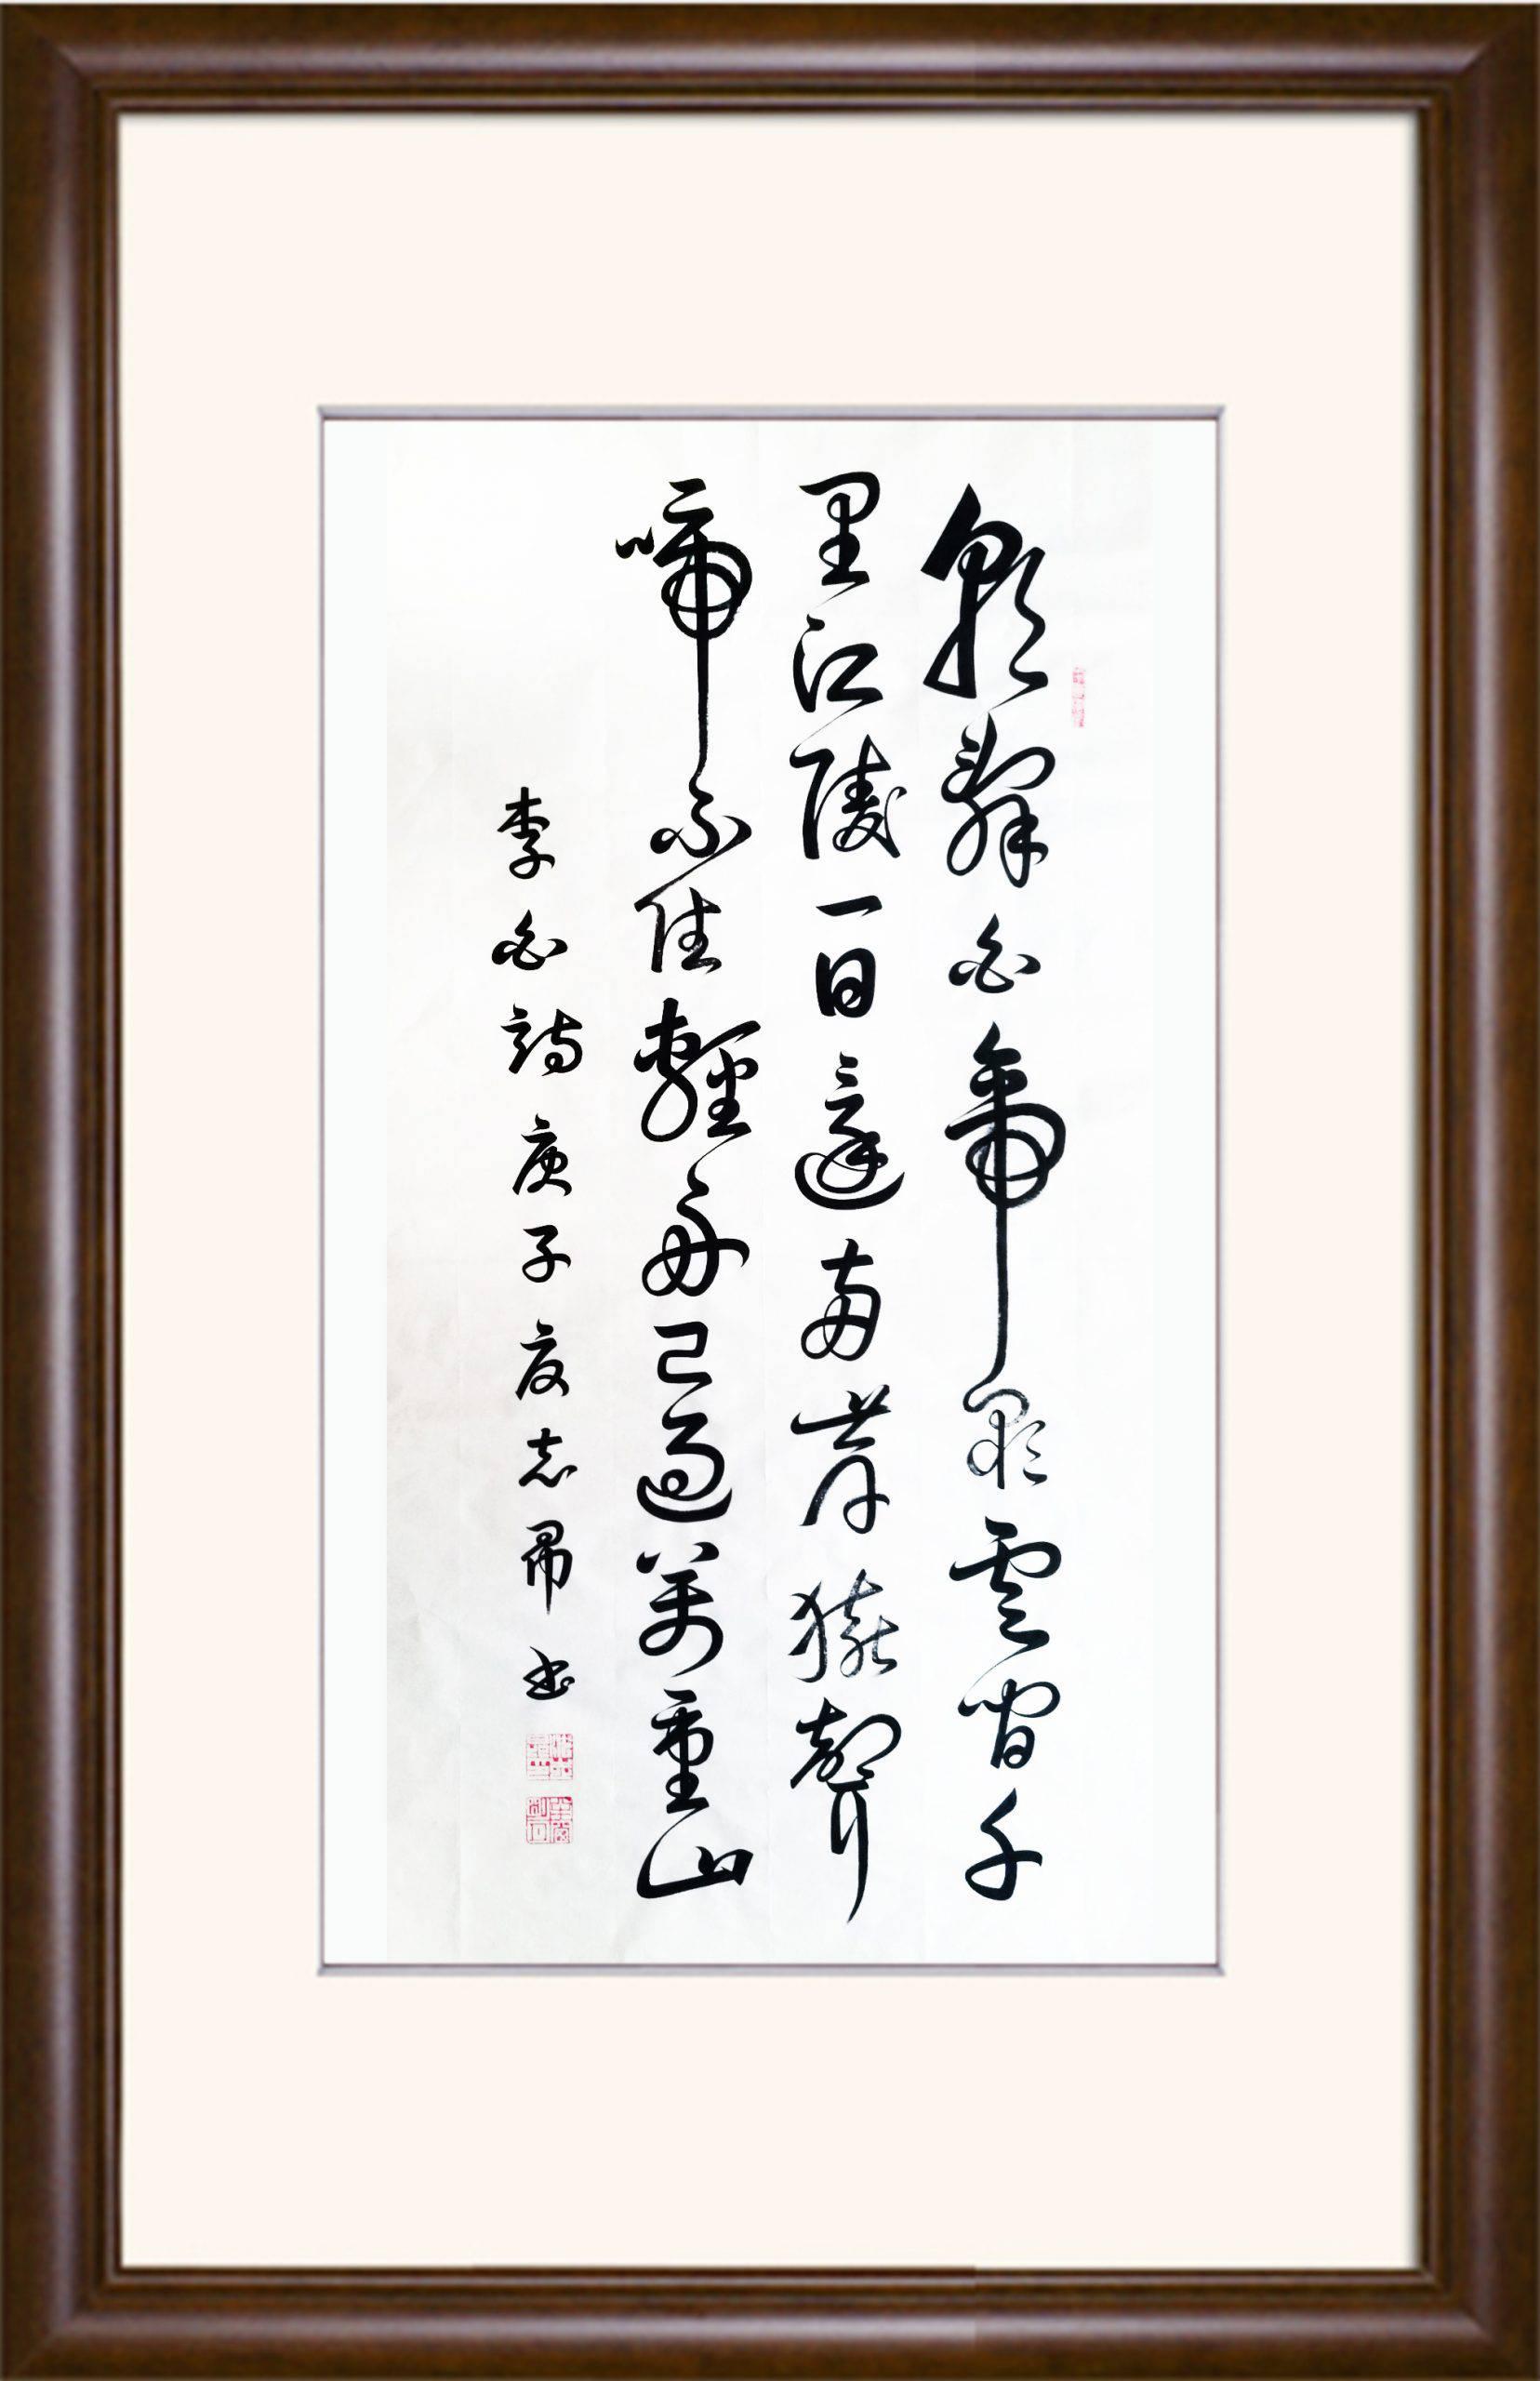 朝辭白帝彩雲間千
里江陵一日還兩岸猿聲
啼不住輕舟已過萬重山
李白詩庚子夏志帚書